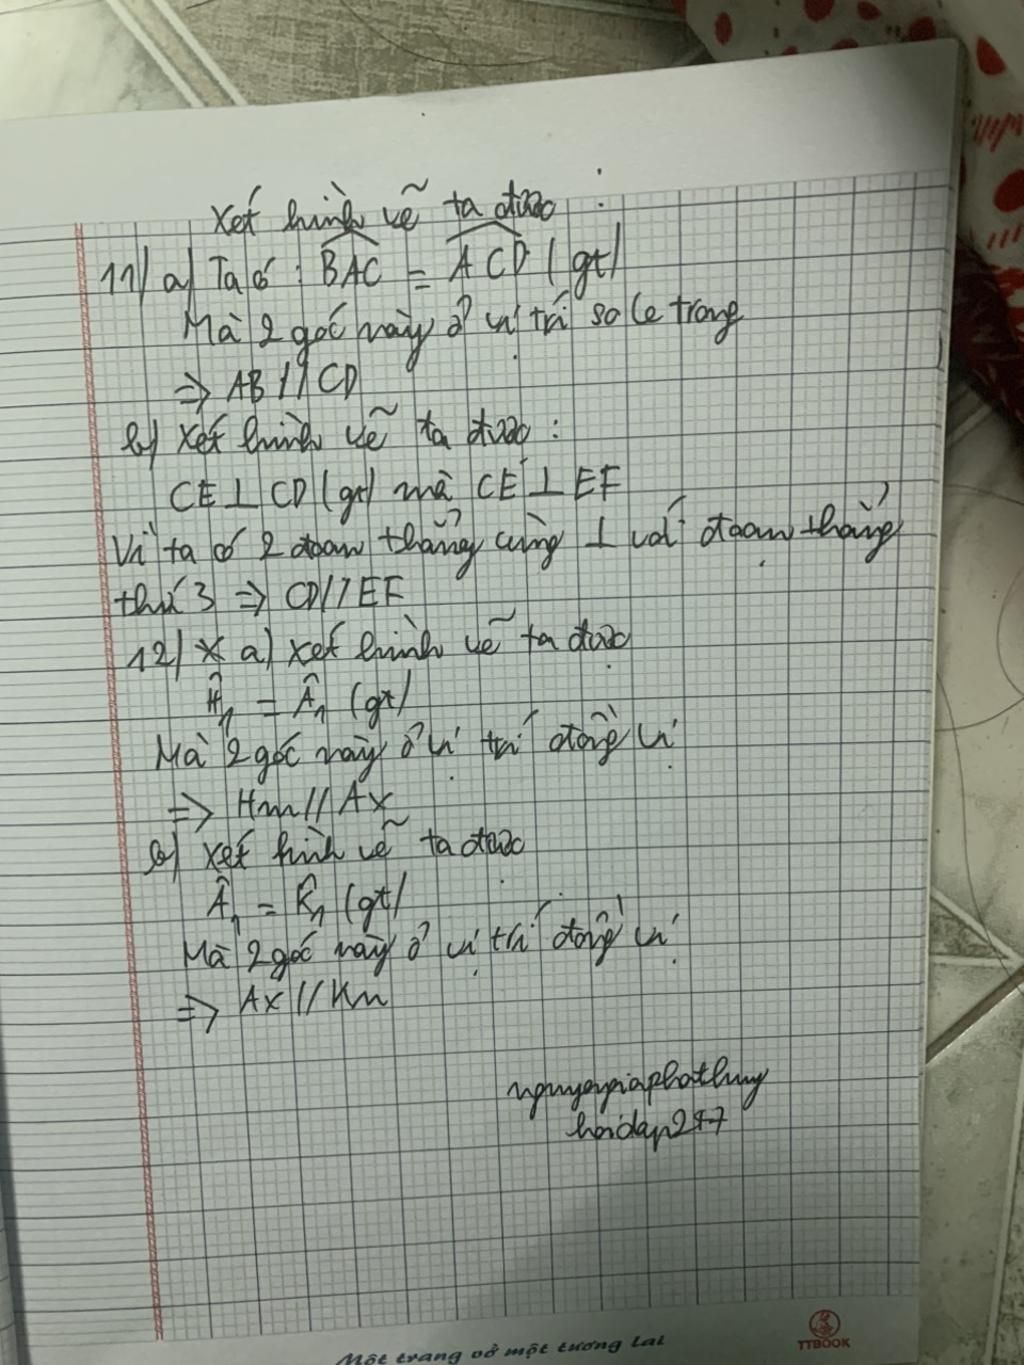 Xét hình vẽ ta được :
11) a) Ta có : BAC = ACD (gt)
Mà 2 góc này ở vị trí so le trong
=> AB // CD
b) Xét hình vẽ ta được :
CE ⊥ CD (gt) mà CE ⊥ EF
Vì ta có 2 đoạn thẳng cùng ⊥ với đoạn thẳng
thứ 3 => CD // EF
12) a) Xét hình vẽ ta được
Ĥ₁ = Â₁ (gt)
Mà 2 góc này ở vị trí đồng vị
=> Hm // Ax
b) Xét hình vẽ ta được
Â₁ = K̂₁ (gt)
Mà 2 góc này ở vị trí đồng vị
=> Ax // Kn
nguyengiaphathuy
hoidap247
Một trang vở một tương lai
TTBOOK